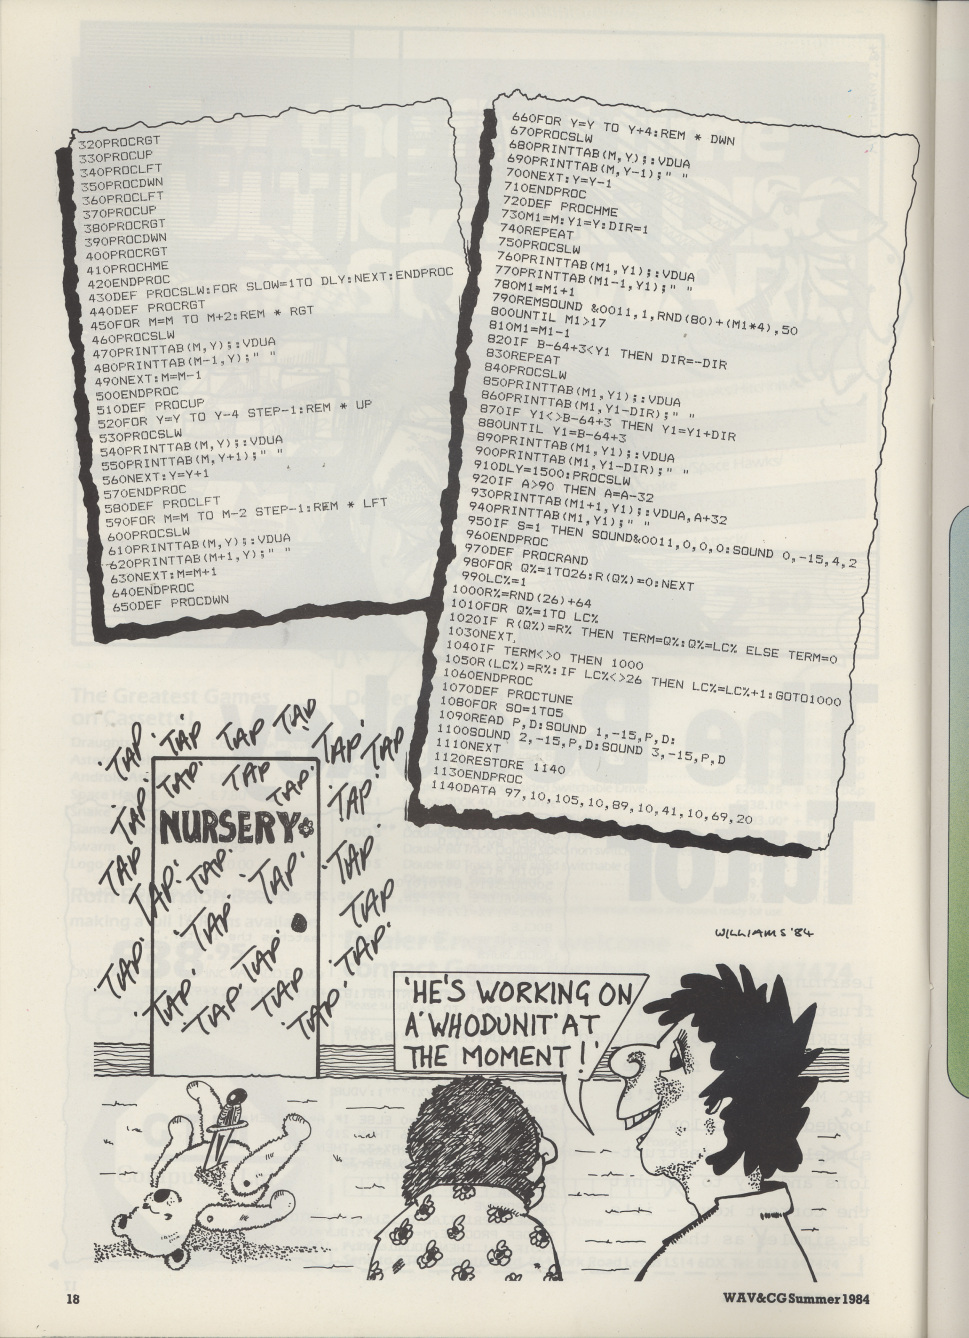 320PROCRGT
330PROCUP
340PROCLFT
350PROCDWN
360PROCLFT
370PROCUP
380PROCRGT
390PROCDWN
400PROCRGT
410PROCHME
420ENDPROC
430DEF PROCSLW:FOR SLOW=1TO DLY:NEXT:ENDPROC
440DEF PROCRGT
450FOR M=M TO M+2:REM * RGT
460PROCSLW
470PRINTTAB(M,Y);:VDUA
480PRINTTAB(M-1,Y);" "
490NEXT:M=M-1
500ENDPROC
510DEF PROCUP
520FOR Y=Y TO Y-4 STEP-1:REM * UP
530PROCSLW
540PRINTTAB(M,Y);:VDUA
550PRINTTAB(M,Y+1);" "
560NEXT:Y=Y+1
570ENDPROC
580DEF PROCLFT
590FOR M=M TO M-2 STEP-1:REM * LFT
600PROCSLW
610PRINTTAB(M,Y);:VDUA
620PRINTTAB(M+1,Y);" "
630NEXT:M=M+1
640ENDPROC
650DEF PROCDWN
660FOR Y=Y TO Y+4:REM * DWN
670PROCSLW
680PRINTTAB(M,Y);:VDUA
690PRINTTAB(M,Y-1);" "
700NEXT:Y=Y-1
710ENDPROC
720DEF PROCHME
730M1=M:Y1=Y:DIR=1
740REPEAT
750PROCSLW
760PRINTTAB(M1,Y1);:VDUA
770PRINTTAB(M1-1,Y1);" "
780M1=M1+1
790REMSOUND &0011,1,RND(80)+(M1*4),50
800UNTIL M1>17
810M1=M1-1
820IF B-64+3<Y1 THEN DIR=-DIR
830REPEAT
840PROCSLW
850PRINTTAB(M1,Y1);:VDUA
860PRINTTAB(M1,Y1-DIR);" "
870IF Y1<>B-64+3 THEN Y1=Y1+DIR
880UNTIL Y1=B-64+3
890PRINTTAB(M1,Y1);:VDUA
900PRINTTAB(M1,Y1-DIR);" "
910DLY=1500:PROCSLW
920IF A>90 THEN A=A-32
930PRINTTAB(M1+1,Y1);:VDUA,A+32
940PRINTTAB(M1,Y1);" "
950IF S=1 THEN SOUND&0011,0,0,0:SOUND 0,-15,4,2
960ENDPROC
970DEF PROCRAND
980FOR Q%=1TO26:R(Q%)=0:NEXT
990LC%=1
1000R%=RND(26)+64
1010FOR Q%=1TO LC%
1020IF R(Q%)=R% THEN TERM=Q%:Q%=LC% ELSE TERM=0
1030NEXT
1040IF TERM<>0 THEN 1000
1050R(LC%)=R%:IF LC%<>26 THEN LC%=LC%+1:GOTO1000
1060ENDPROC
1070DEF PROCTUNE
1080FOR SO=1TO5
1090READ P,D:SOUND 1,-15,P,D:
1100SOUND 2,-15,P,D:SOUND 3,-15,P,D
1110NEXT
1120RESTORE 1140
1130ENDPROC
1140DATA 97,10,105,10,89,10,41,10,69,20
'TAP' 'TAP' TAP TAP 'TAP' TAP
TAP TAP TAP TAP
TAP
NURSERY
TAP TAP TAP TAP
TAP TAP TAP
TAP TAP TAP
TAP TAP TAP TAP
WILLIAMS '84
'HE'S WORKING ON
A 'WHODUNIT' AT
THE MOMENT!'
18
WAV&CG Summer 1984